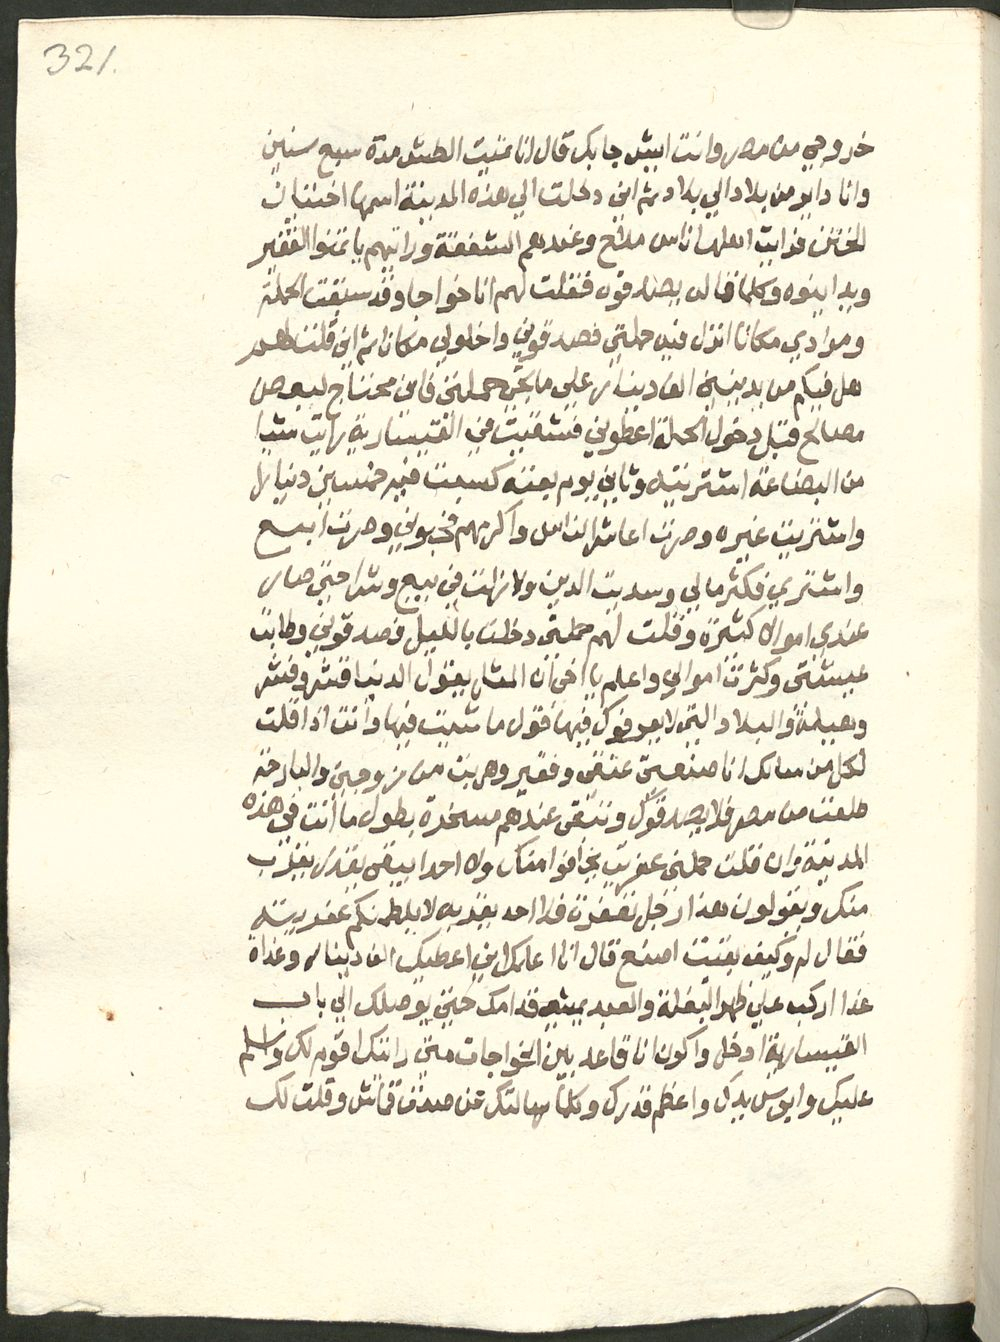 321.
خروجي من مصر وانت ايش جابك قال انا غلبت الطيش مدة سبع سنين
وانا داير من بلاد الي بلاد ثم اني دخلت الي هذه المدينة اسمها اختيان
الختن فرايت اهلها اناس ملاح وعندهم الشفقة ورايتهم ياتمنوا الفقير
ويداينوه وكلما قال بصدقوه فقلت لهم انا خواجا وقد سبقت الحملة
ومرادي مكانا انزل فيه حملتي فصدقوني واخلولي مكانا ثم اني قلت لهم
هل فيكم من يدينني الف دينار علي ما تجي حملتي فاني محتاج لبعض
مصالح قبل دخول الحملة اعطوني فشقيت في القيسارية رايت شيا
من البضاعة اشتريته وثاني يوم بعته كسبت فيه خمسين دينارا
واشتريت غيره وصرت اعاشر الناس واكرمهم فحبوني وصرت ابيع
واشتري فكثر مالي وسديت الدين ولا زلت في بيع وشرا حتي صار
عندي اموالا كثيرة وقلت لهم حملتي دخلت بالليل فصدقوني وطابت
عيشتي وكثرت اموالي واعلم يا اخي ان المثل يقول الدنيا فشر وفشر
وحيلة والبلاد التي لا يعرفوك فيها قول ما شيت فيها وانت اذا قلت
لكل من سالك انا صنعتي عتقي وفقير وهربت من زوجتي والبارحة
طلعت من مصر فلا يصدقوك وتبقي عندهم مسخرة بطول ما انت في هذه
المدينة وان قلت حملني عفريت يخافوا منك ولا احدا يبقي يقدر يقرب
منك ويقولون هذا رجل تعفرت فلا احد يقربه لا يلطرنكم عفريته
فقال له وكيف بقيت اصنع قال انا اعلمك اني اعطيك الف دينار وغداة
غدا اركب علي ظهر البغلة والعبد يمشي قدامك حتي يوصلك الي باب
القيسارية ادخل واكون انا قاعد بين الخواجات متي رايتك اقوم لك واسلم
عليك وابوس يدك واعظم قدرك وكلما سالتك عن صنف قماش وقلت لك